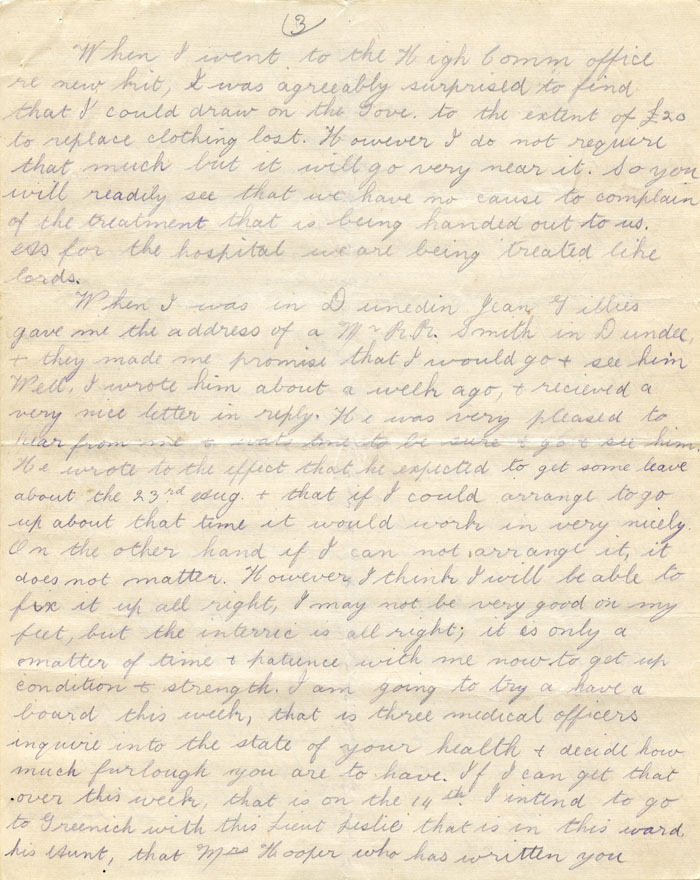 (3)
When I went to the High Comm office
re new kit, I was agreeably surprised to find
that I could draw on the Gove. to the extent of £20
to replace clothing lost. However I do not require
that much but it will go very near it. So you
will readily see that we have no cause to complain
of the treatment that is being handed out to us.
As for the hospital we are being treated like
lords.
When I was in Dunedin Jean Gillies
gave me the address of a Mr R.R. Smith in Dundee,
+ they made me promise that I would go + see him
Well, I wrote him about a week ago, + recieved a
very nice letter in reply. He was very pleased to
hear from me + wants me to be sure + go + see him.
He wrote to the effect that he expected to get some leave
about the 23rd Aug. + that if I could arrange to go
up about that time it would work in very nicely.
On the other hand if I can not arrange it, it
does not matter. However, I think I will be able to
fix it up all right, I may not be very good on my
feet, but the interric is all right; it is only a
matter of time + patience with me now to get up
condition + strength. I am going to try a have a
board this week, that is three medical officers
inquire into the state of your health + decide how
much furlough you are to have. If I can get that
over this week, that is on the 14th. I intend to go
to Greenich with this Lieut Leslie that is in this ward,
his Aunt, that Mrs Hooper who has written you